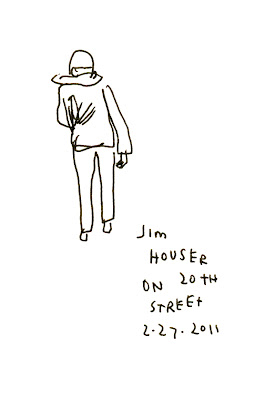 Jim
HOUSER
ON 20TH
STREET
2.27.2011